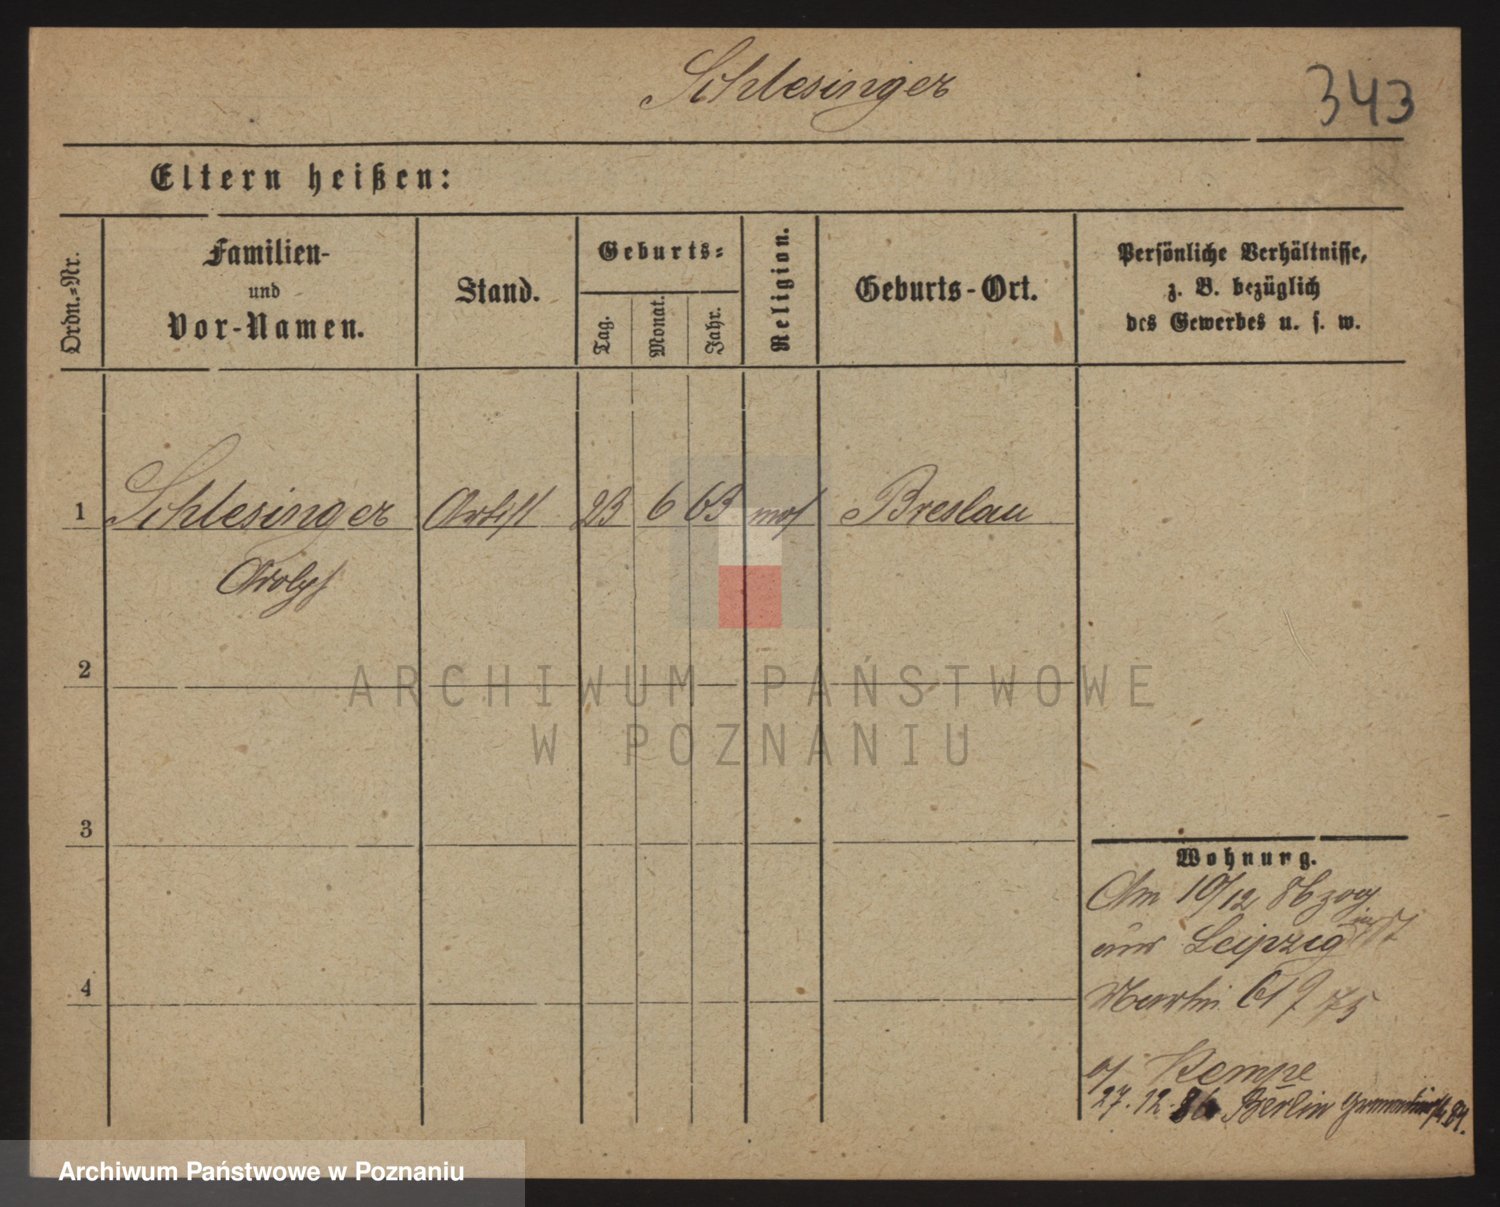 Schlesinger
343
Eltern heißen:
Ordn.=Nr.
Familien-
und
Vor-Namen.
Stand.
Geburts=
Tag.
Monat.
Jahr.
Religion.
Geburts-Ort.
Persönliche Verhältnisse,
z. B. bezüglich
des Gewerbes u. s. w.
1 Schlesinger Artist 23 6 63 mos Breslau
Adolf
2
3
4
Wohnung.
Am 10/12 86 zog
aus Leipzig
Martin
Kempe
27. 12. 86 Berlin
ARCHIWUM PAŃSTWOWE
W POZNANIU
Archiwum Państwowe w Poznaniu